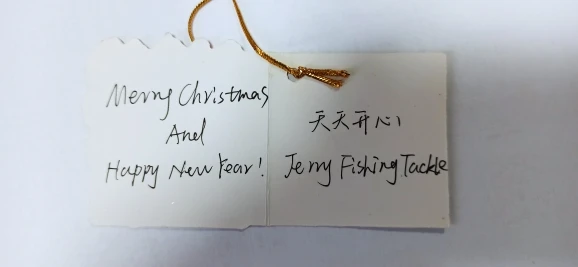 Merry Christmas
And
Happy New Year!
天天开心
Jerry Fishing Tackle